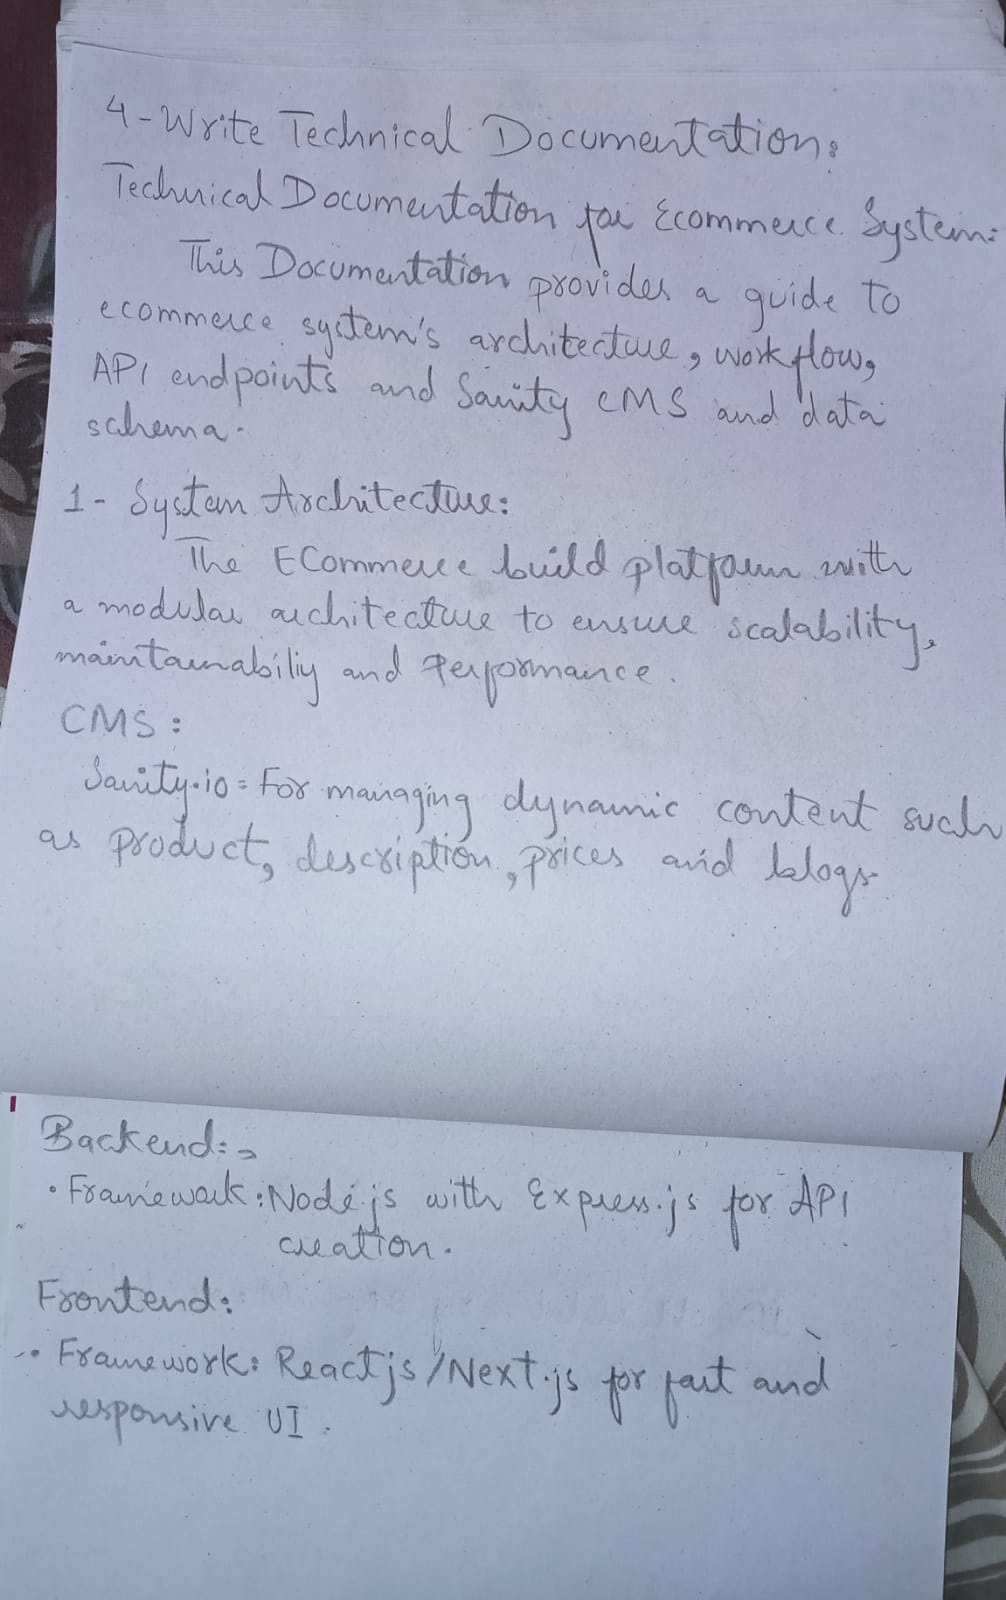 4-Write Technical Documentation:
Technical Documentation for Ecommerce System:
This Documentation provides a guide to
ecommerce system's architecture, workflow,
API endpoints and Sanity CMS and data
schema.
1- System Architecture:
The ECommerce build platform with
a modular architecture to ensure scalability,
maintainabiliy and Performance.
CMS:
Sanity.io = For managing dynamic content such
as product, description, prices and blogs
Backend:
• Framework: Node.js with Express.js for API
creation.
Frontend:
• Framework: React.js/Next.js for fast and
responsive UI.